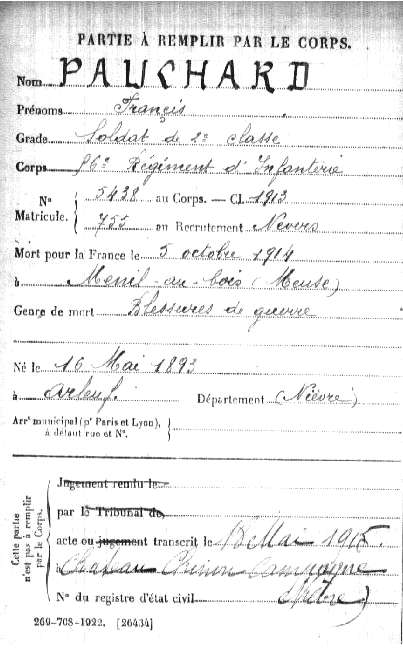 PARTIE À REMPLIR PAR LE CORPS.
Nom PAUCHARD
Prénoms Francis
Grade Soldat de 2e classe
Corps 96e Régiment d'Infanterie
No 5438 au Corps. — Cl. 1913
Matricule. 755 au Recrutement Nevers
Mort pour la France le 5 octobre 1914
à Menil-au-bois (Meuse)
Genre de mort Blessures de guerre
Né le 16 Mai 1893
à Arleuf. Département (Nièvre)
Arrt municipal (pr Paris et Lyon),
à défaut rue et No.
Cette partie
n'est pas à remplir
par le Corps.
Jugement rendu le
par le Tribunal de
acte ou jugement transcrit le Mai 1915.
à Chateau Chinon Campagne
No du registre d'état civil (Nièvre)
269-708-1922. [26434]